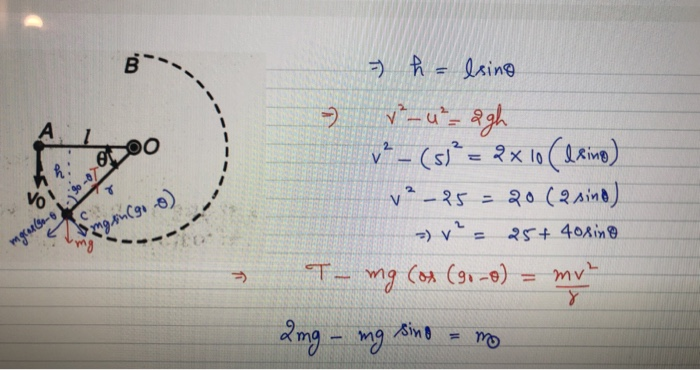 B
A l O
θ
h
90-θ T
r
V₀
C
mg cos(90-θ
mg sin(90-θ)
mg
⇒ h = l sinθ
⇒ v² - u² = 2gh
v² - (5)² = 2 × 10 (l sinθ)
v² - 25 = 20 (2 sinθ)
⇒ v² = 25 + 40 sinθ
⇒ T - mg Cos (90-θ) = mv²/r
2mg - mg sinθ = m